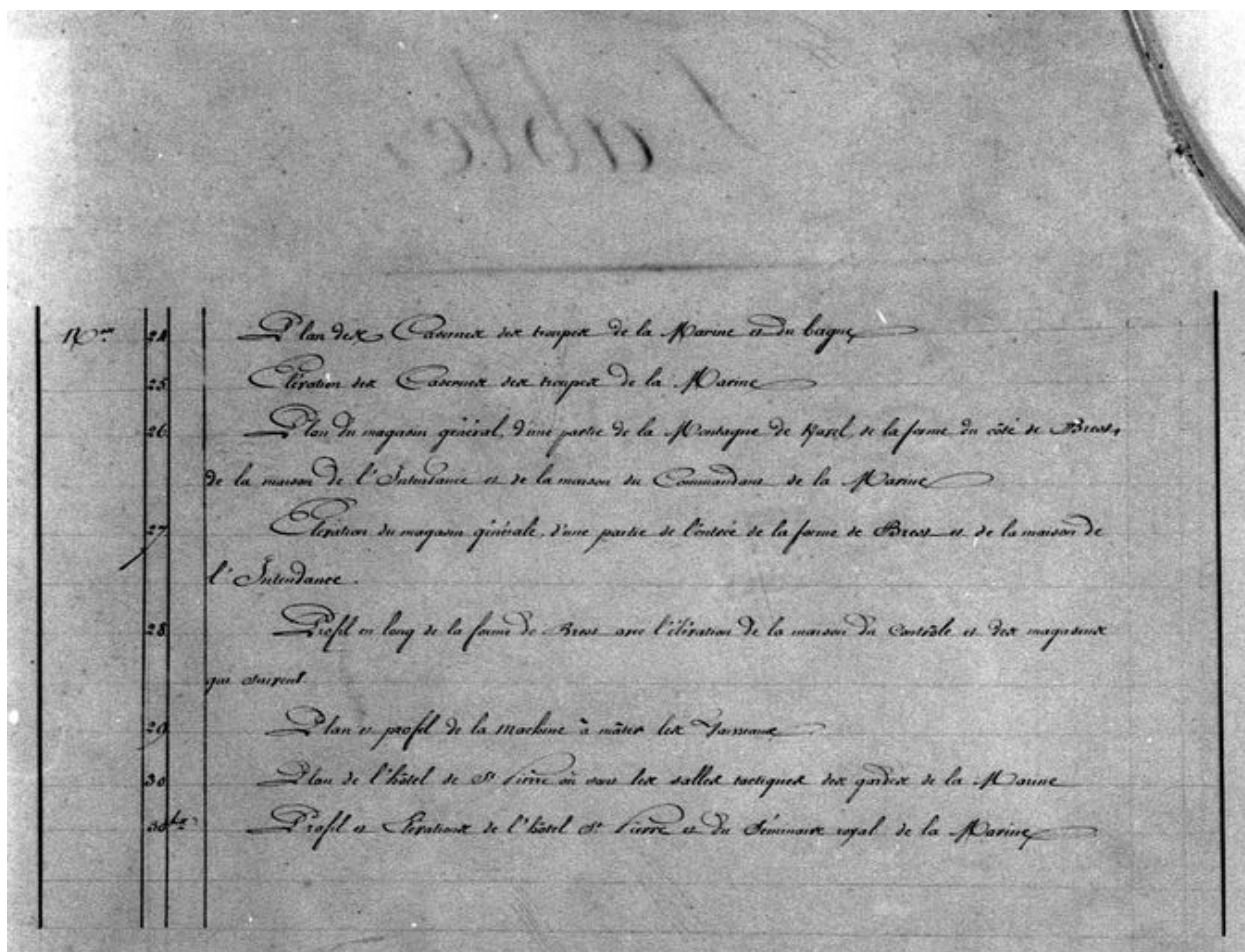 Table
Nos 24 Plan des Casernes des troupes de la Marine et du bagne
25 Elévation des Casernes des troupes de la Marine
26 Plan du magasin général, d'une partie de la Montagne de Karel, de la forme du côté de Brest,
de la maison de l'Intendance et de la maison du Commandant de la Marine
27 Elévation du magasin générale, d'une partie de l'entrée de la forme de Brest et de la maison de
l'Intendance.
28 Profil en long de la forme de Brest avec l'élévation de la maison du Contrôle et des magasins
qui suivent.
29 Plan et profil de la machine à mâter les Vaisseaux
30 Plan de l'hôtel de St Pierre où sont les salles tactiques des gardes de la Marine
30 bis Profil et Elévations de l'hôtel St Pierre et du Séminaire royal de la Marine